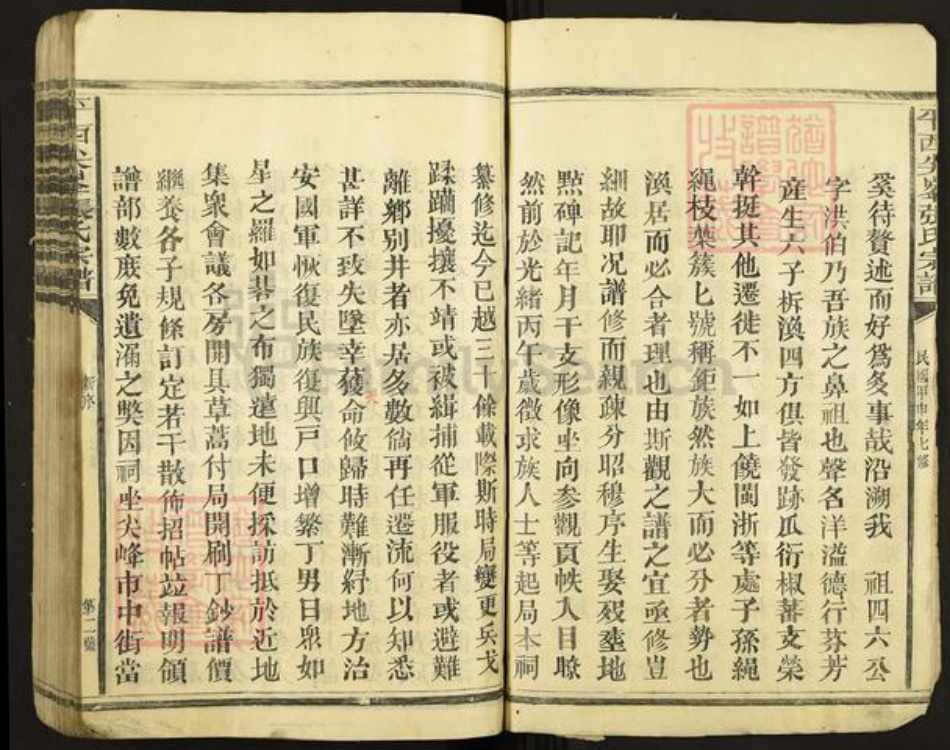 奚待贅述而好爲多事哉沿溯我 祖四六公
字洪伯乃吾族之鼻祖也聲名洋溢德行芬芳
産生六子析渙四方俱皆發跡瓜衍椒蕃支榮
幹挺其他遷徙不一如上饒閩浙等處子孫繩
繩枝葉簇匕號稱鉅族然族大而必分者勢也
渙居而必合者理也由斯觀之譜之宜亟修豈
細故耶况譜修而親疎分昭穆序生娶殁塟地
㸃碑記年月干支形像坐向参觀頁帙入目瞭
然前於光緒丙午歲徵求族人士等起局本祠
纂修迄今已越三十餘載際斯時局變更兵戈
蹂躪擾攘不靖或被緝捕從軍服役者或避難
離鄉别井者亦居多數倘再任遷流何以知悉
甚詳不致失墜幸獲命攸歸時難漸紓地方治
安國軍恢復民族復興戸口增繁丁男日衆如
星之羅如碁之布獨遠地未便採訪抵於近地
集衆會議各房開具草藁付局開刷丁鈔譜價
繼養各子規條訂定若干散佈招帖竝報明領
譜部數庶免遺漏之獘因祠坐尖峰市中街當
民國甲申年七修
新序
第二號